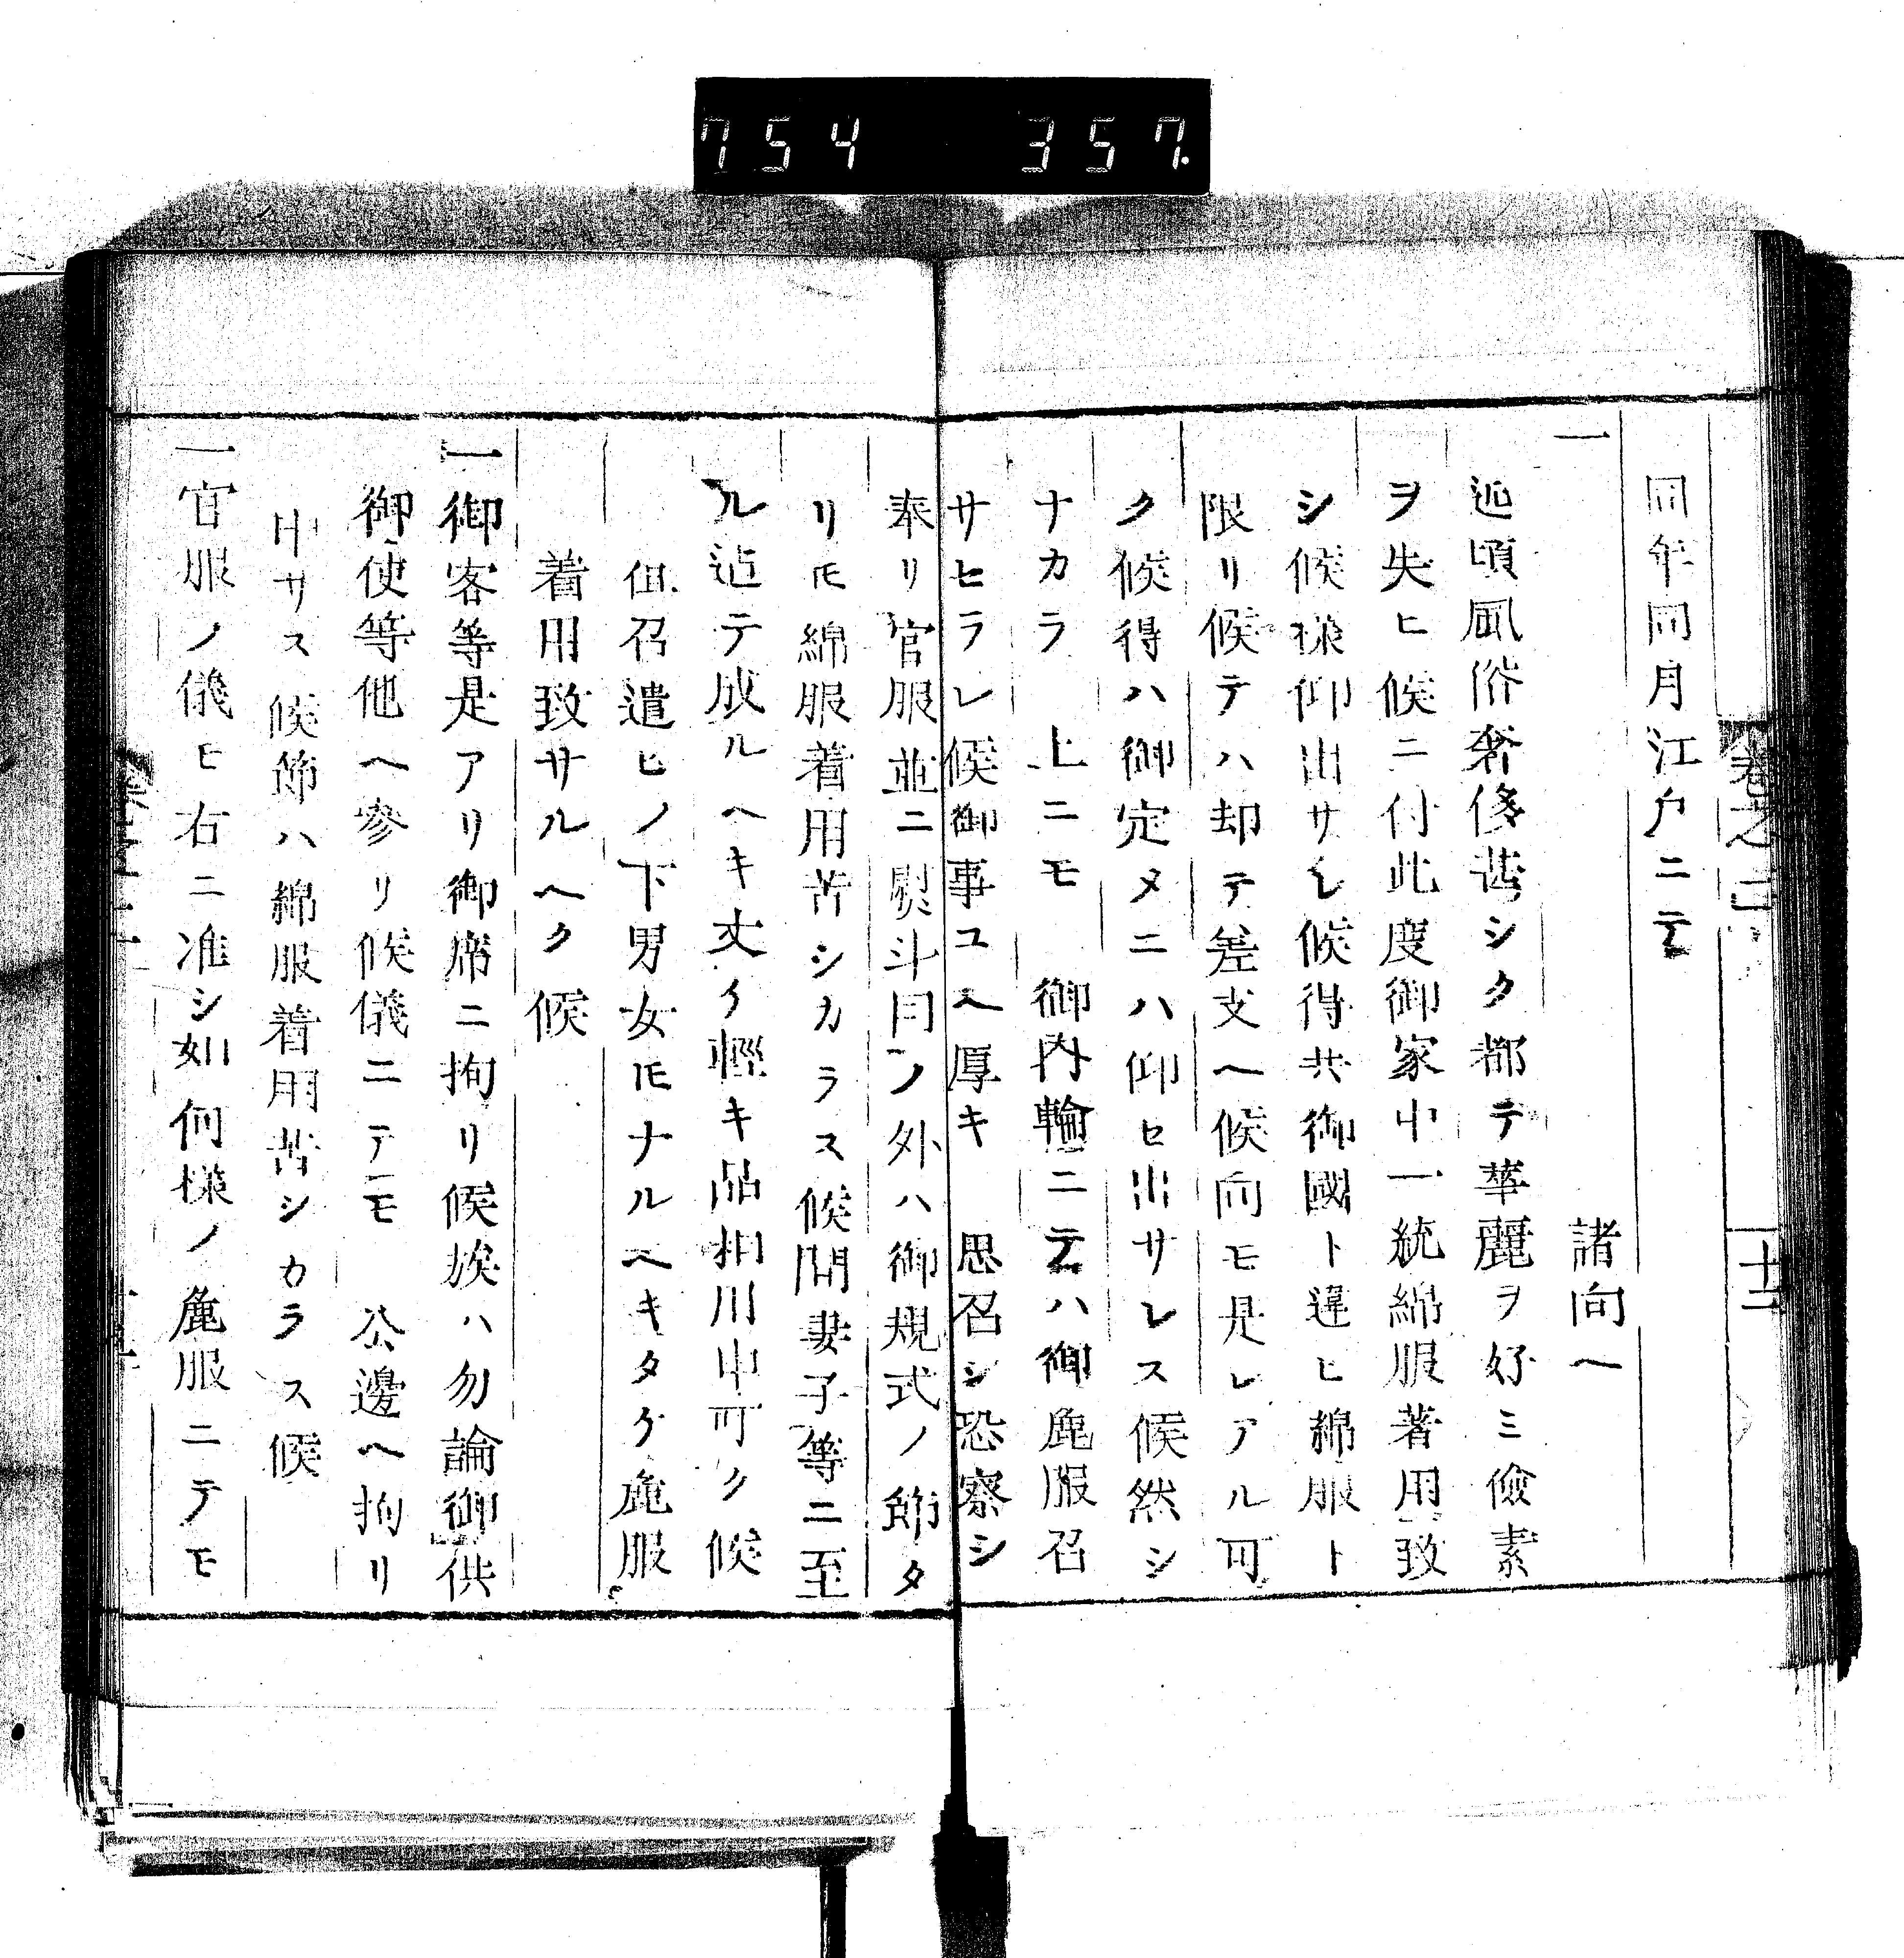 754 357.
卷之二 十二
同年同月江戸ニテ
一 諸向ヘ
近頃風俗奢侈甚シク都テ華麗ヲ好ミ儉素
ヲ失ヒ候ニ付此度御家中一統綿服著用致
シ候様仰出サレ候得共御國ト違ヒ綿服ト
限リ候テハ却テ差支ヘ候向モ是レアル可
ク候得ハ御定メニハ仰セ出サレス候然シ
ナカラ 上ニモ 御内輪ニテハ御麁服召
サヒラレ候御事ユヘ厚キ 思召シ恐察シ
奉リ官服並ニ熨斗目ノ外ハ御規式ノ節タ
リ𪜈綿服着用苦シカラス候間妻子等ニ至
ル迠テ成ルヘキ丈ケ輕キ品相用申可ク候
但召遣ヒノ下男女𪜈ナルヘキタケ麁服
着用致サルヘク候
一御客等是アリ御席ニ拘リ候族ハ勿論御供
御使等他ヘ參リ候儀ニテモ 公邊ヘ拘リ
申サス候節ハ綿服着用苦シカラス候
一官服ノ儀ヒ右ニ准シ如何様ノ麁服ニテモ